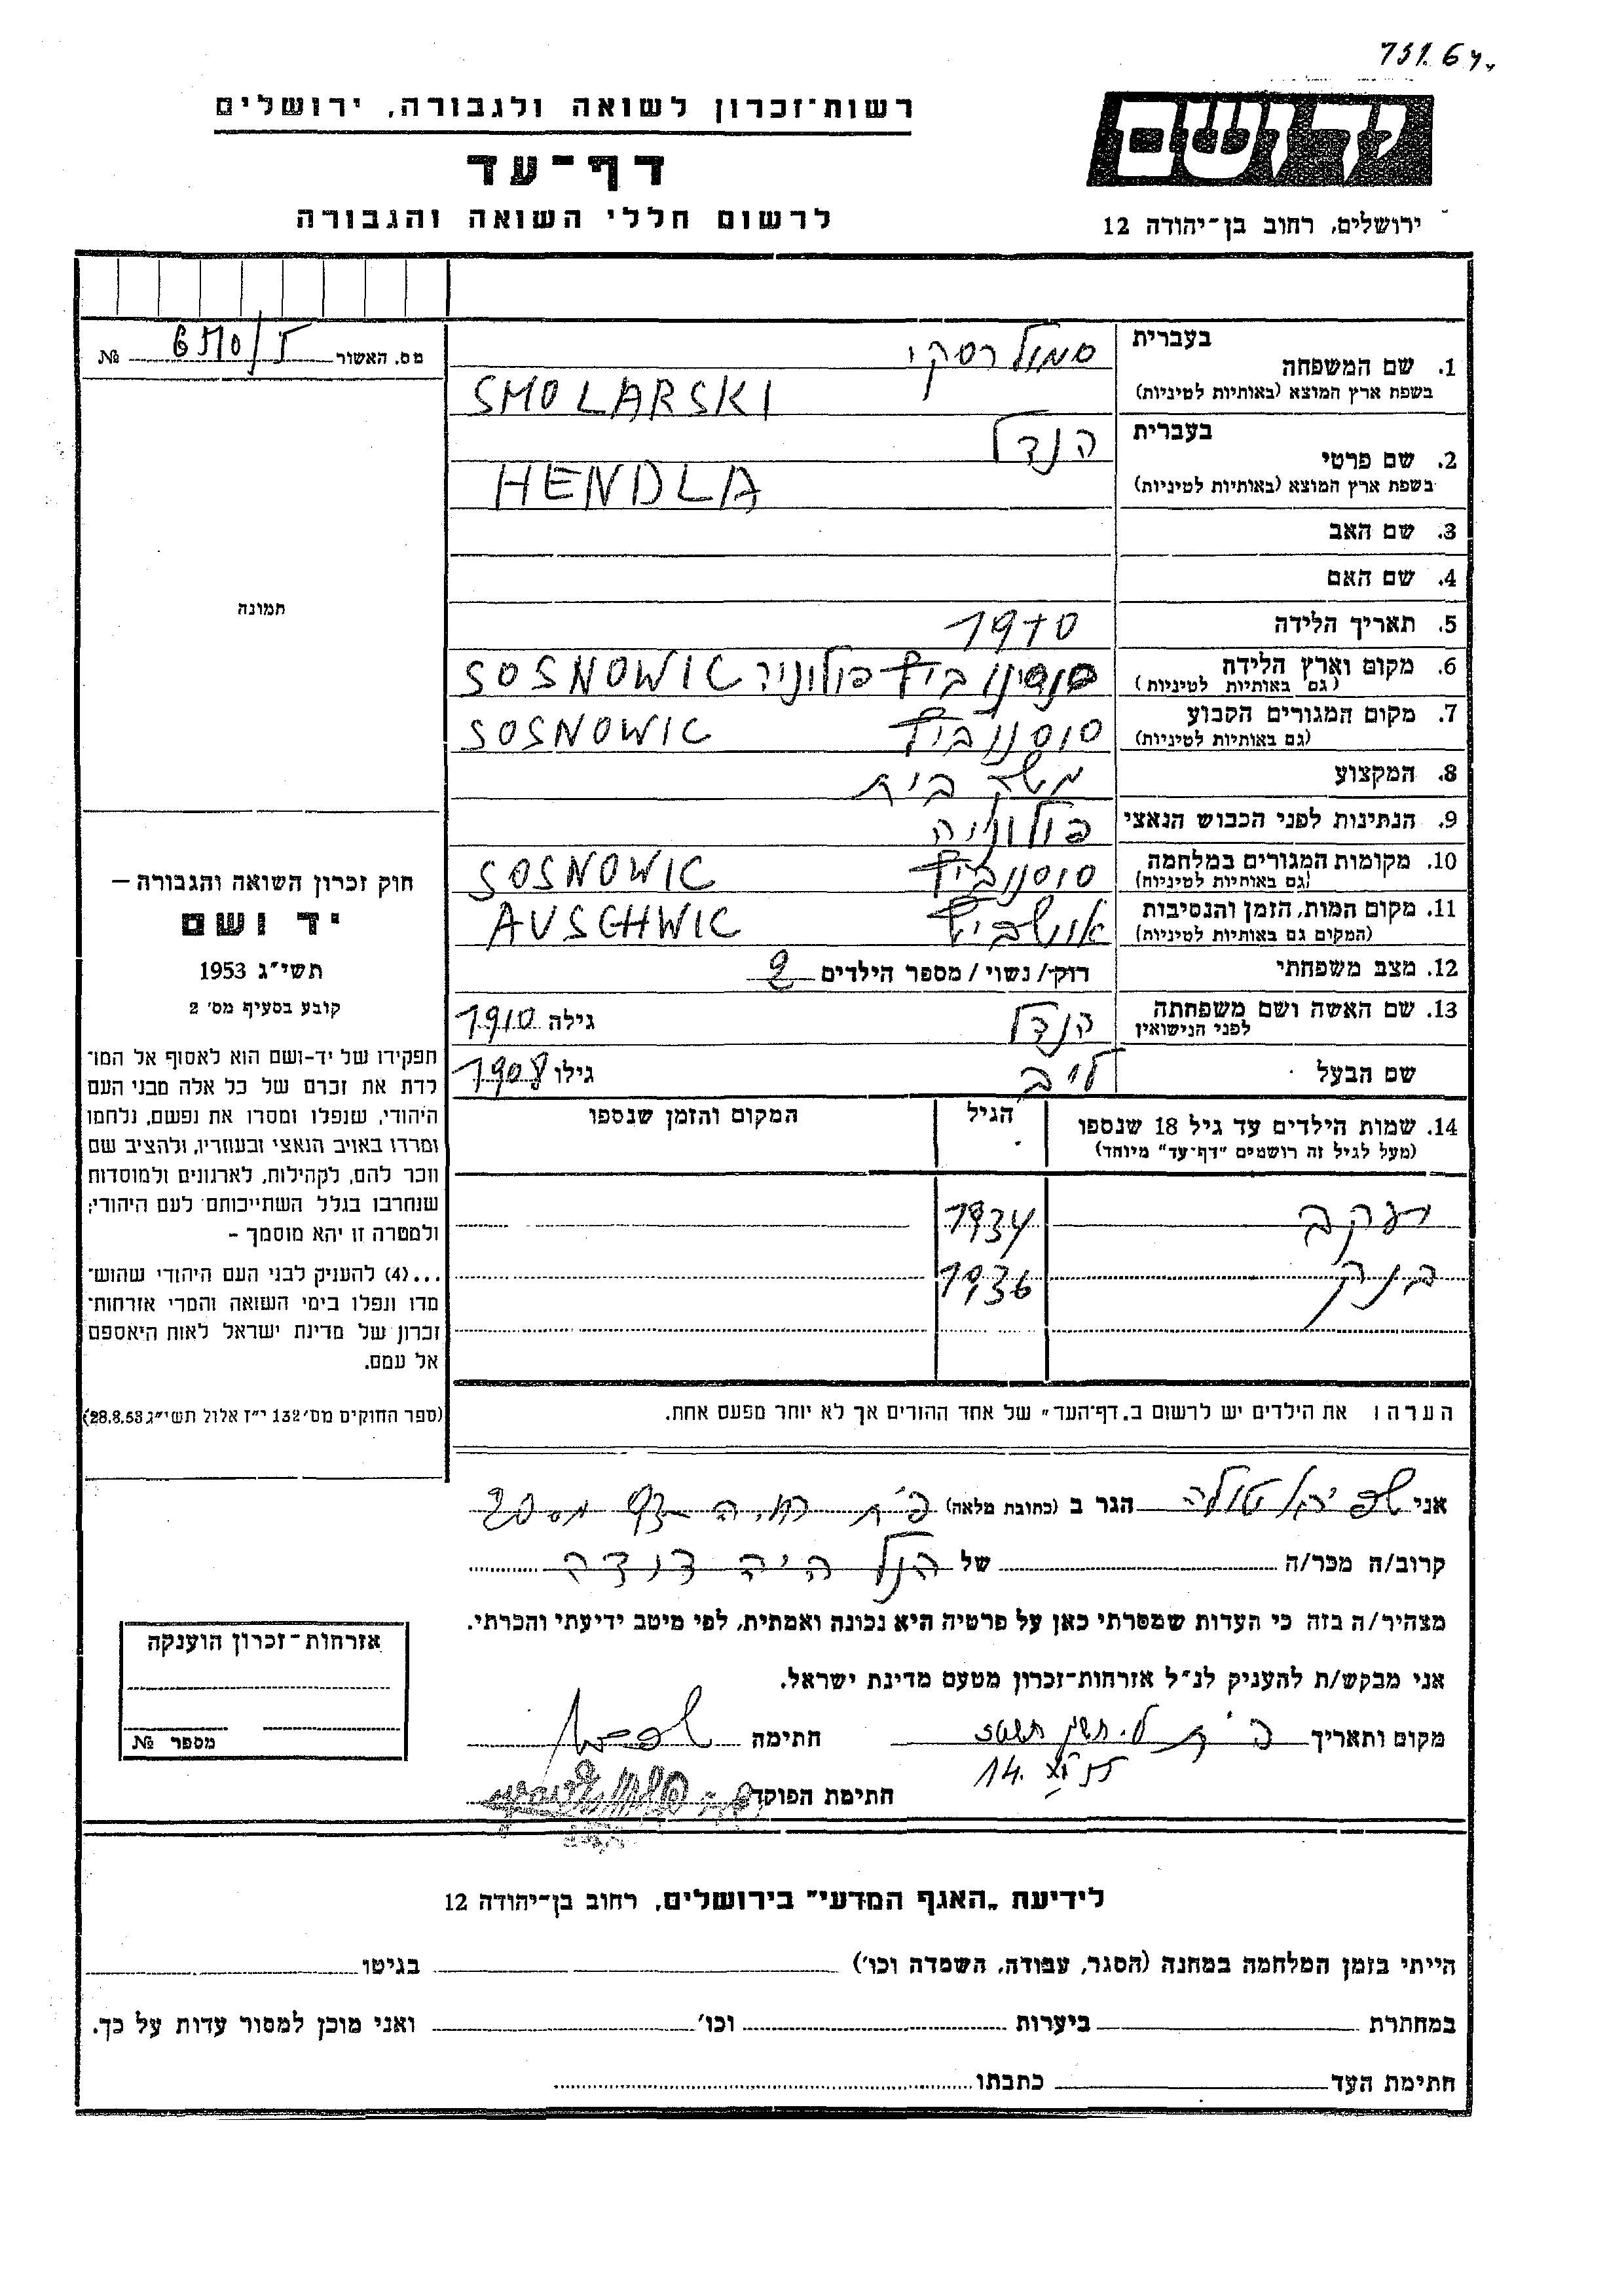 רשות־זכרון לשואה ולגבורה, ירושלים
דף־עד
לרשום חללי השואה והגבורה
יד ושם
ירושלים, רחוב בן־יהודה 12
מס. האשור № 
1. שם המשפחה
בעברית סמולרסקי
בשפת ארץ המוצא (באותיות לטיניות) SMOLARSKI
2. שם פרטי
בעברית הנדל
בשפת ארץ המוצא (באותיות לטיניות) HENDLA
3. שם האב
4. שם האם
5. תאריך הלידה 1910
6. מקום וארץ הלידה פולוניה SOSNOWIC
(גם באותיות לטיניות)
7. מקום המגורים הקבוע סוסנוביץ SOSNOWIC
(גם באותיות לטיניות)
8. המקצוע משק בית
9. הנתינות לפני הכבוש הנאצי פולוניה
10. מקומות המגורים במלחמה סוסנוביץ SOSNOWIC
(גם באותיות לטיניות)
11. מקום המות, הזמן והנסיבות אושביץ AUSCHWIC
(המקום גם באותיות לטיניות)
12. מצב משפחתי רווק / נשוי / מספר הילדים 2
13. שם האשה ושם משפחתה הנדל גילה 1910
לפני הנישואין
שם הבעל לייב גילו 1908
14. שמות הילדים עד גיל 18 שנספו הגיל המקום והזמן שנספו
(מעל לגיל זה רושמים "דף־עד" מיוחד)
יעקב 1934
1936
הערה: את הילדים יש לרשום ב„דף־העד" של אחד ההורים אך לא יותר מפעם אחת.
תמונה
חוק זכרון השואה והגבורה –
יד ושם
תשי"ג 1953
קובע בסעיף מס' 2
תפקידו של יד־ושם הוא לאסוף אל המו־
לדת את זכרם של כל אלה מבני העם
היהודי, שנפלו ומסרו את נפשם, נלחמו
ומרדו באויב הנאצי ובעוזריו, ולהציב שם
וזכר להם, לקהילות, לארגונים ולמוסדות
שנחרבו בגלל השתייכותם לעם היהודי;
ולמטרה זו יהא מוסמך –
...(4) להעניק לבני העם היהודי שהוש־
מדו ונפלו בימי השואה והמרי אזרחות־
זכרון של מדינת ישראל לאות היאספם
אל עמם.
(ספר החוקים מס' 132 י"ז אלול תשי"ג 28.8.53)
אני הגר ב (כתובת מלאה)
קרוב/ה מכר/ה של
מצהיר/ה בזה כי העדות שמסרתי כאן על פרטיה היא נכונה ואמתית, לפי מיטב ידיעתי והכרתי.
אני מבקש/ת להעניק לנ"ל אזרחות־זכרון מטעם מדינת ישראל.
מקום ותאריך חתימה
חתימת הפוקד
אזרחות־זכרון הוענקה
מספר №
לידיעת „האגף המדעי" בירושלים, רחוב בן־יהודה 12
הייתי בזמן המלחמה במחנה (הסגר, עבודה, השמדה וכו') בגיטו
במחתרת ביערות וכו' ואני מוכן למסור עדות על כך.
חתימת העד כתבתו